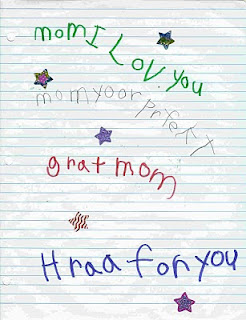 momI Lov.you
momyoorprfekt
gratmom
Hraaforyou